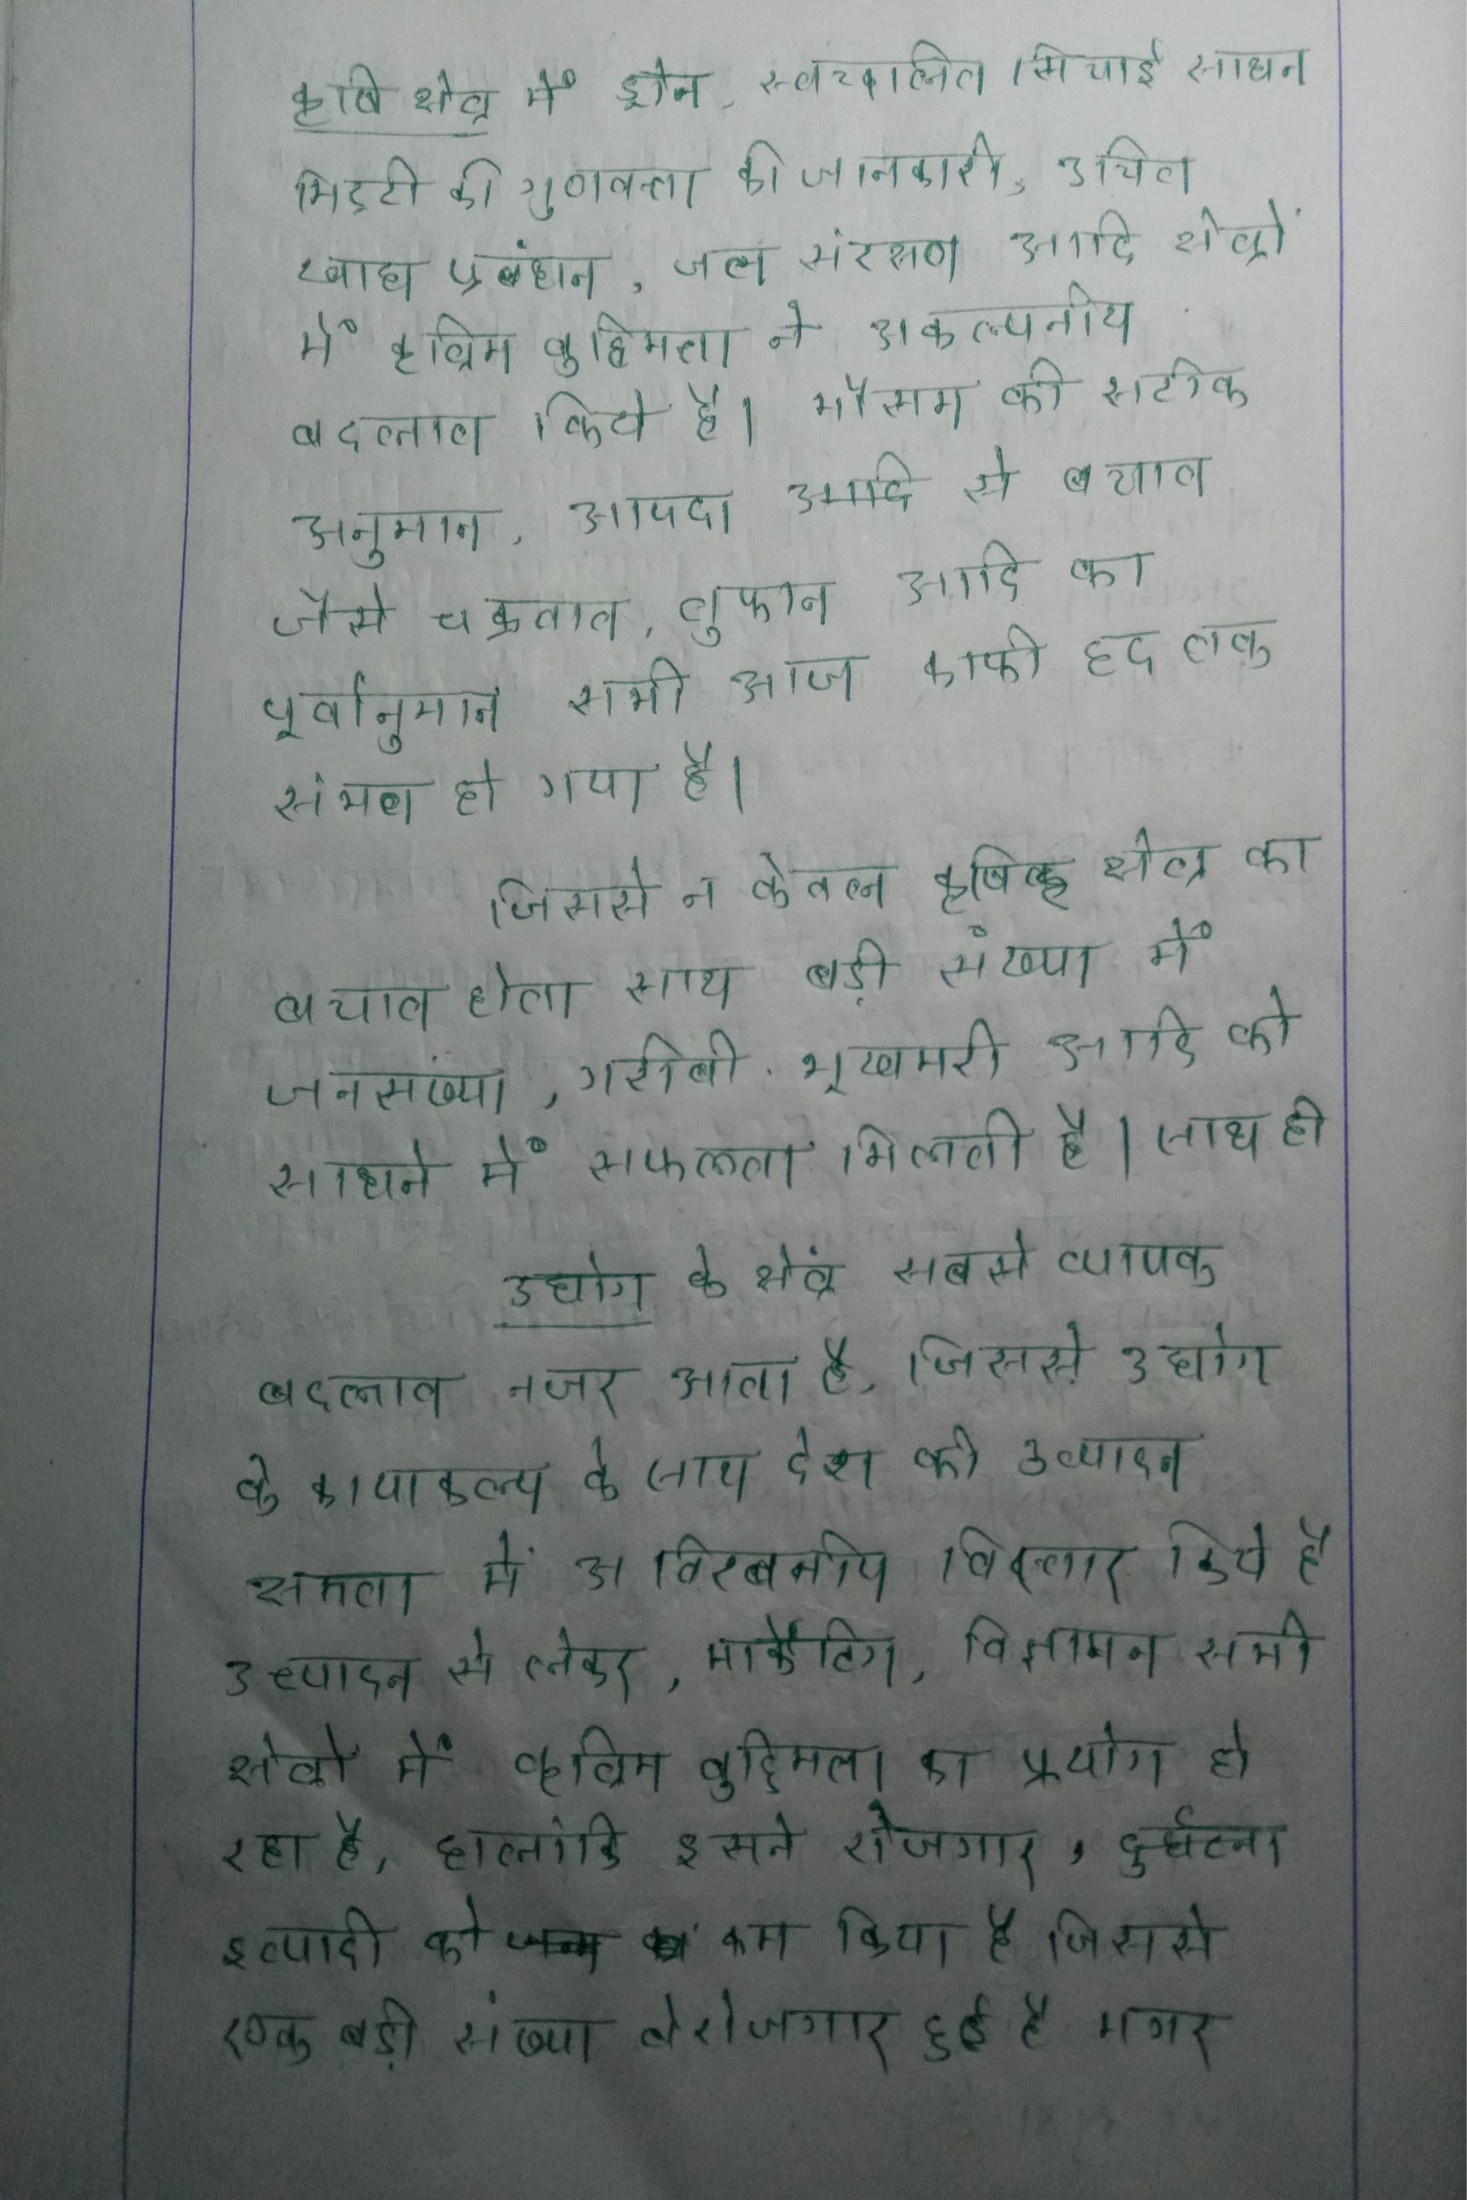 कृषि क्षेत्र में ड्रोन, स्वचालित सिचाई साधन
मिट्टी की गुणवत्ता की जानकारी, उचित
खाद्य प्रबंधन, जल संरक्षण आदि क्षेत्रों
में कृत्रिम बुद्धिमत्ता ने अकल्पनीय
बदलाव किये है। मौसम की सटीक
अनुमान, आपदा आदि से बचाव
जैसे चक्रवात, तुफान आदि का
पूर्वानुमान सभी आज काफी हद तक
संभव हो गया है।
जिससे न केवल कृषि क्षेत्र का
बचाव होता साथ बड़ी संख्या में
जनसंख्या, गरीबी, भूखमरी आदि को
साधने में सफलता मिलती है। साथ ही
उद्योग के क्षेत्र सबसे व्यापक
बदलाव नजर आता है, जिससे उद्योग
के कायाकल्प के साथ देश की उत्पादन
क्षमता में विस्तार किये है
उत्पादन से लेकर, मार्केटिंग, विज्ञापन सभी
क्षेत्रों में कृत्रिम बुद्दिमता का प्रयोग हो
रहा है, हालांकि इसने रोजगार, दुर्घटना
इत्यादी को कम किया है जिससे
एक बड़ी संख्या बेरोजगार हुई है मगर